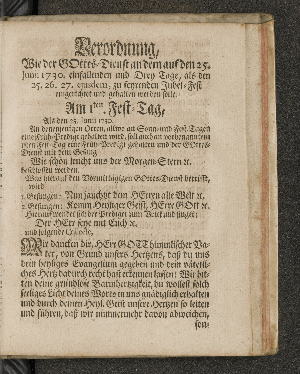 Verordnung,
Wie der GOttes-Dienst an dem auf den 25.
Junii 1730. einfallenden und Drey Tage, als den
25. 26. 27. ejusdem, zu feyrenden Jubel-Fest
eingerichtet und gehalten werden solle.
Am 1ten Fest-Tag,
Als den 25. Junii 1730.
An denenjenigen Orten, allwo an Sonn- und Fest-Tagen
eine Früh-Predigt gehalten wird, soll auch an
Fest-Tag eine Früh-Predigt gehalten und der GOttes-
Dienst mit dem Gesang:
Wie schön leucht uns der Morgen-Stern ꝛc.
beschlossen werden.
Was hierauf den Vormittägigen GOttes-Dienst betrifft,
wird
1. Gesungen: Nun jauchzet dem HErrn alle Welt ꝛc.
2. Gesungen: Komm Heyliger Geist, HErre GOtt ꝛc.
Hierauf wendet sich der Prediger zum Volck und singet:
Der HErr seye mit Euch ꝛc.
und folgende
Wir dancken dir, HErr GOTT himmlischer Va-
ter, von Grund unsers Hertzens, daß du uns
dein heyliges Evangelium gegeben und dein vätterli-
ches Hertz dadurch recht hast erkennen lassen: Wir bit-
ten deine grundlose Barmhertzigkeit, du wollest solch
seeliges Licht deines Worts in uns gnädiglich erhalten
und durch deinen Heyl. Geist unsere Hertzen so leiten
und führen, daß wir nimmermehr davon abweichen,
son-